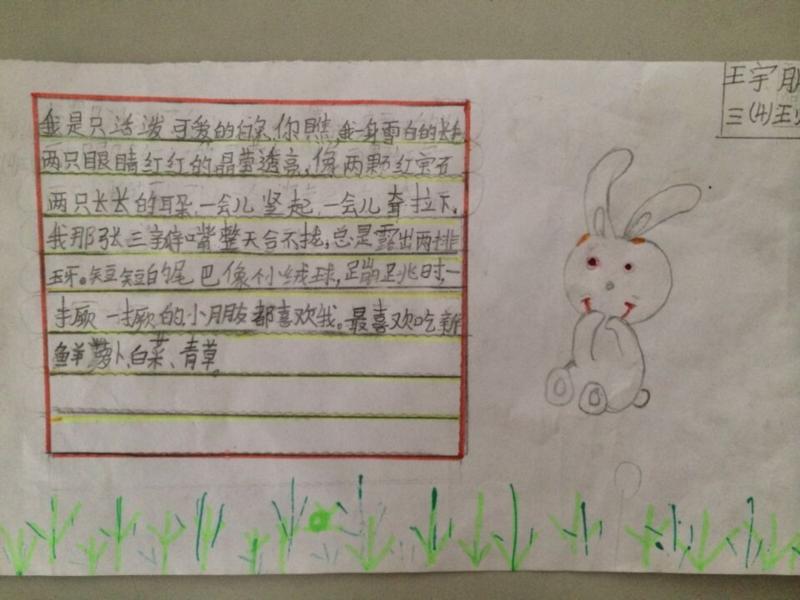 我是只活泼可爱的白兔,你瞧,我一身雪白的长毛
两只眼睛红红的晶莹透亮,像两颗红宝石
两只长长的耳朵,一会儿竖起,一会儿耷拉下,
我那张三瓣嘴整天合不拢,总是露出两排
玉牙。短短的尾巴像个小绒球,蹦跳时,一
撅一撅的小朋友都喜欢我。最喜欢吃新
鲜萝卜、白菜、青草。
王宇朋
三(4)王